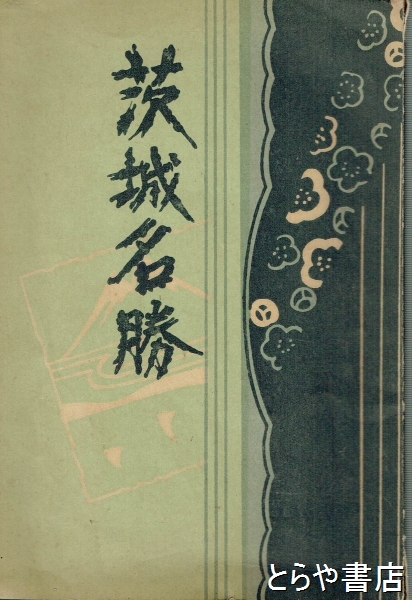 茨城名勝
とらや書店